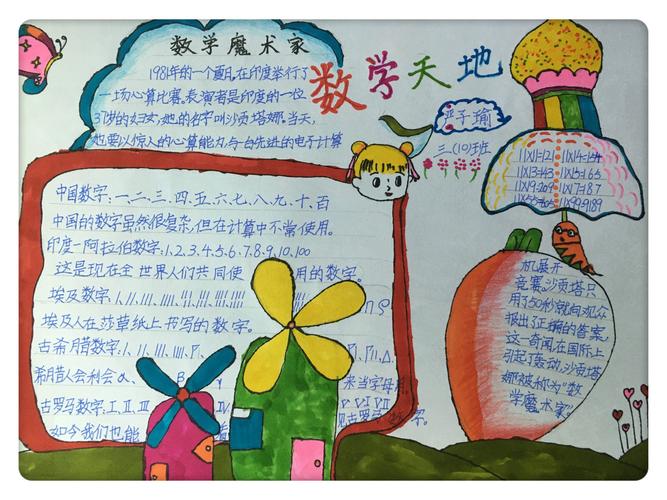 数学魔术家
1981年的一个夏日,在印度举行了
一场心算比赛。表演者是印度的一位
37岁的妇女,她的名字叫沙贡塔娜。当天,
她要以惊人的心算能力,与一台先进的电子计算
数学天地
严子瑜
三.(10)班
11X11=121 11X14=154
11X13=143 11X15=165
11X19=209 11X17=187
中国数字:一、二、三、四、五、六、七、八、九、十、百
中国的数字虽然很复杂,但在计算中不常使用。
印度-阿拉伯数字:1、2、3、4、5、6、7、8、9、10、100
这是现在全世界人们共同使用的数字。
埃及数字:
埃及人在莎草纸上书写的数字。
古希腊数字:
希腊人会利 来当字母用
古罗马数字:I、II、III
如今我们也能 看 见古罗马数字。
机展开
竞赛。沙贡塔只
用了50秒就向观众
报出正确的答案
这一奇闻,在国际上
引起了轰动,沙贡塔
娜被称为“数
学魔术家”